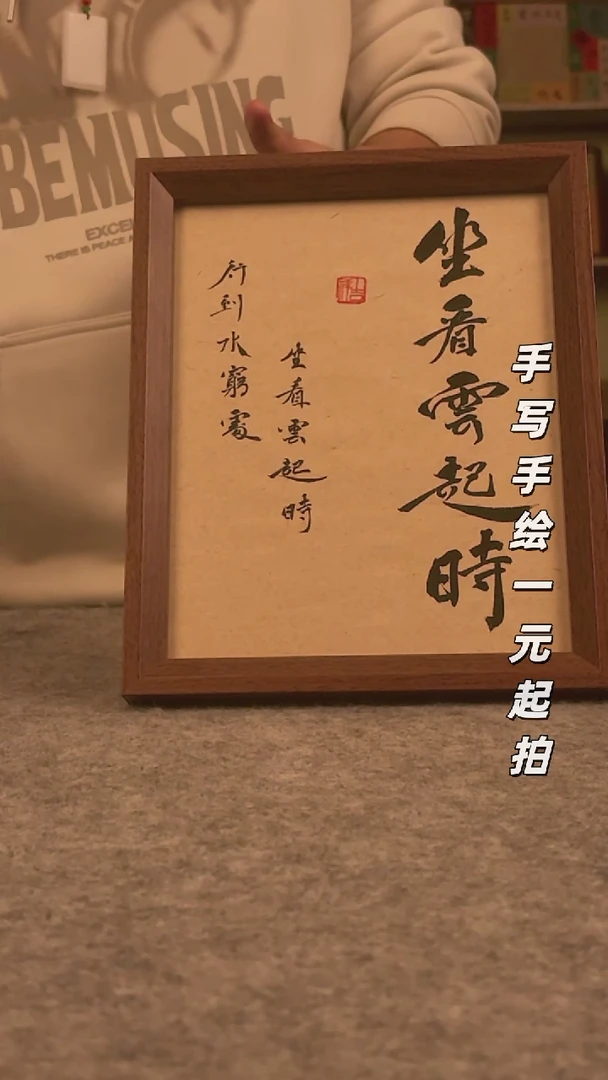 BEMUSING
坐看雲起時
坐看雲起時
行到水窮處
手写手绘一元起拍